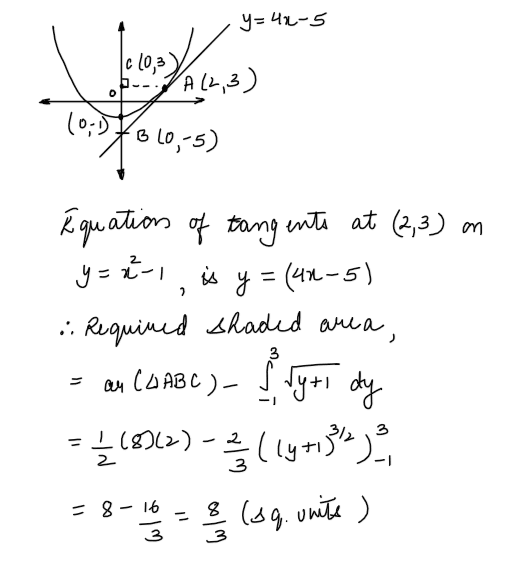 y = 4x - 5
C (0,3)
A (2,3)
O
(0,-1)
B (0,-5)
Equation of tangents at (2,3) on
y = x² - 1, is y = (4x - 5)
∴ Required shaded area,
= ar (△ABC) - ∫₋₁³ √(y+1) dy
= 1/2 (8)(2) - 2/3 ((y+1)^{3/2})₋₁³
= 8 - 16/3 = 8/3 (sq. units)